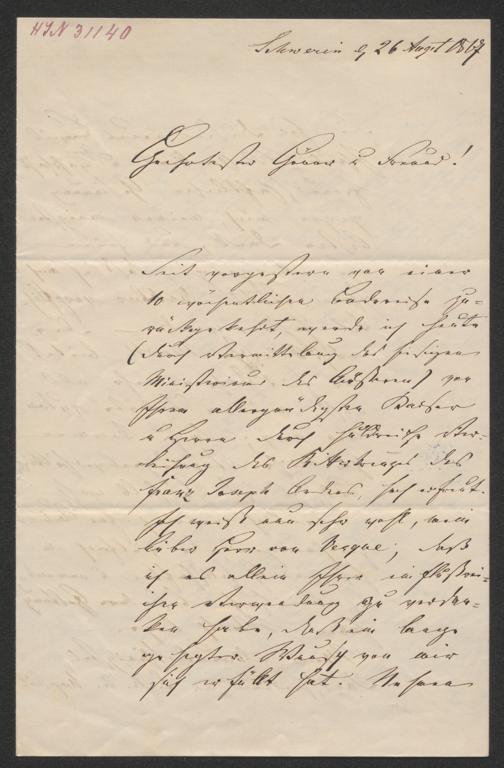 HIN 31140
Schwerin d, 26 August 1867
Geehrtester Gönner u Freund!
Seit vorgestern von einer
10 wöchentlichen Badereise zu-
rückgekehrt, werde ich heute
(durch Vermittelung des hiesigen
Ministeriums des Äußeren) von
Ihrem allergnädigsten Kaiser
u Herrn durch huldreiche Ver-
leihung des Ritterkreuzes des
Franz Joseph Ordens, hoch erfreut.
Ich weiß nun sehr wohl, mein
lieber Herr von, daß
ich es allein Ihrer einflußrei-
chen Verwendung zu verdan-
ken habe, daß ein lange
gehegter Wunsch von mir
sich erfüllt hat. Nehmen